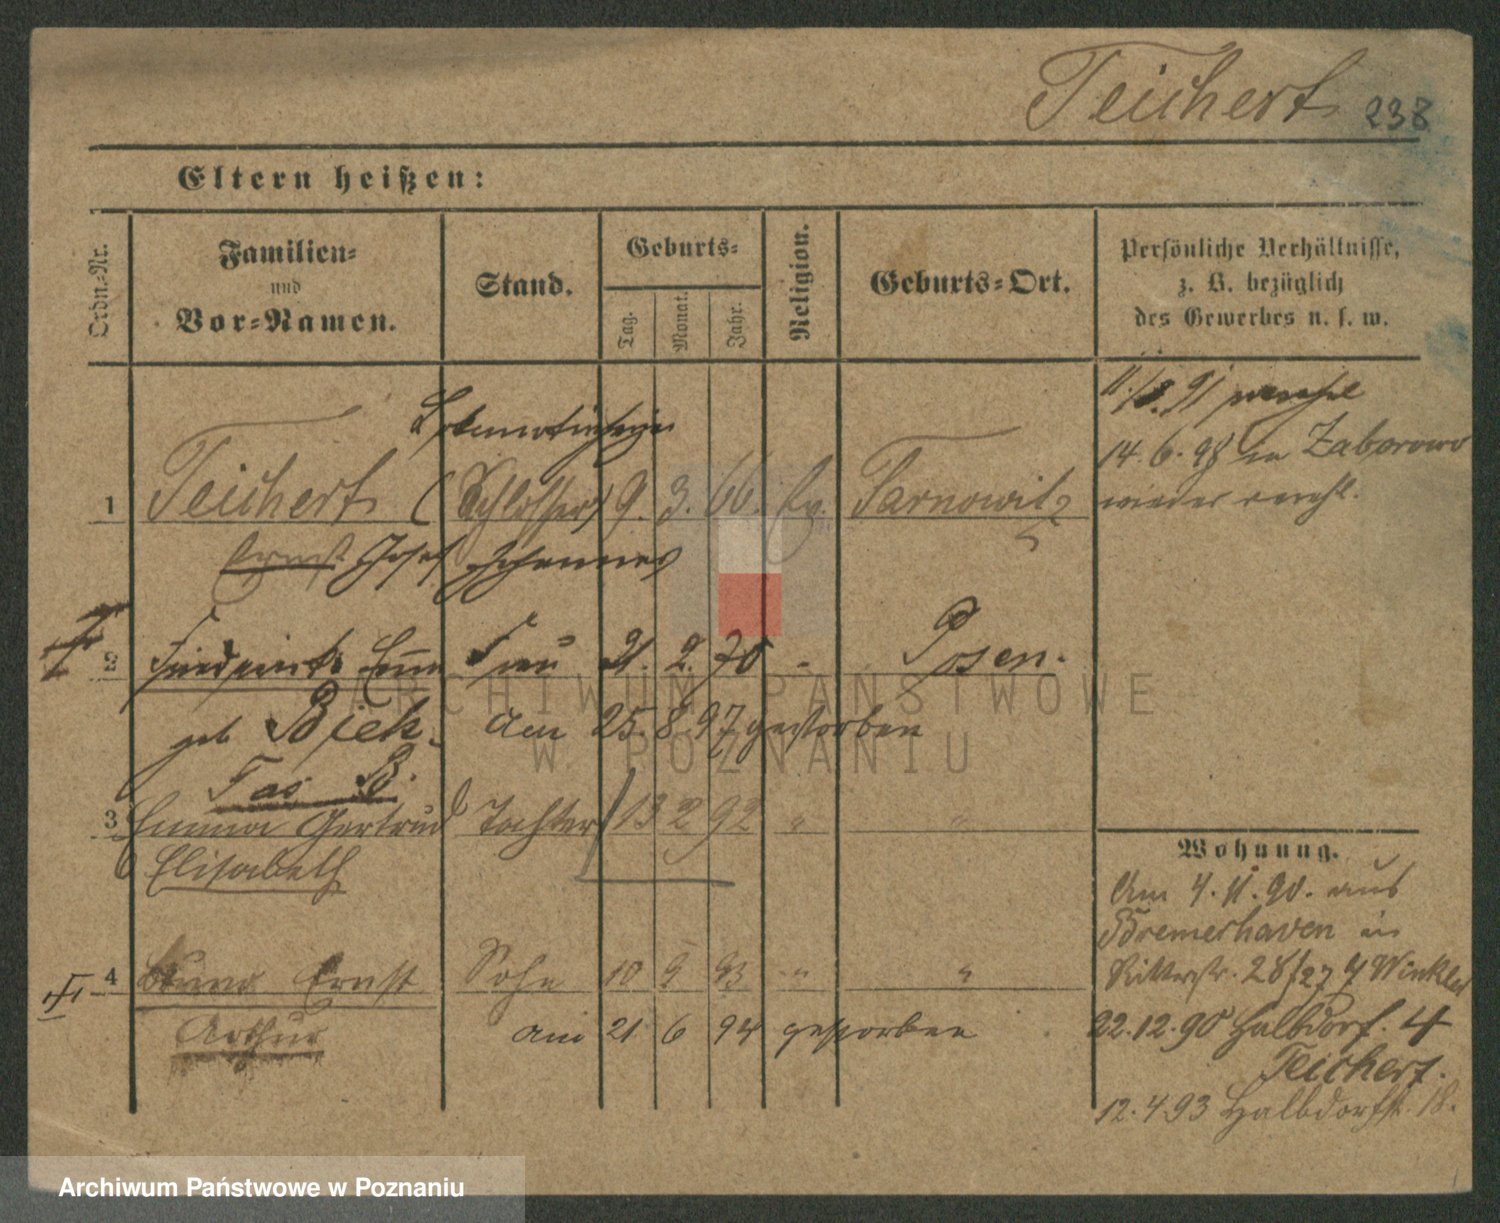 Teichert 238
Eltern heißen:
Ordn.-Nr.
Familien-
und
Vor-Namen.
Stand.
Geburts-
Tag.
Monat.
Jahr.
Religion.
Geburts-Ort.
Persönliche Verhältnisse,
z. B. bezüglich
des Gewerbes u. s. w.
14.6.98 in Zaborowo
wieder verehl.
1 Teichert (Schlosser) 9. 3. 66. Ev. Tarnowitz
Ernst Josef Johannes
2 Frau 21. 2. 70 " Posen.
geb. Bick. am 25. 8. 97 gestorben
3 Emma Gertrud Tochter 13 2 92 " "
Elisabeth
4 Bruno Ernst Sohn 10 9 93 " "
Arthur am 21 6 94 gestorben
Wohnung.
Am 4. 11. 90. aus
Bremerhaven in
Ritterstr. 28/27 Winkler
22.12.90 Halbdorf. 4
Teichert.
12.4.93 Halbdorfstr. 18.
ARCHIWUM PAŃSTWOWE
W POZNANIU
Archiwum Państwowe w Poznaniu